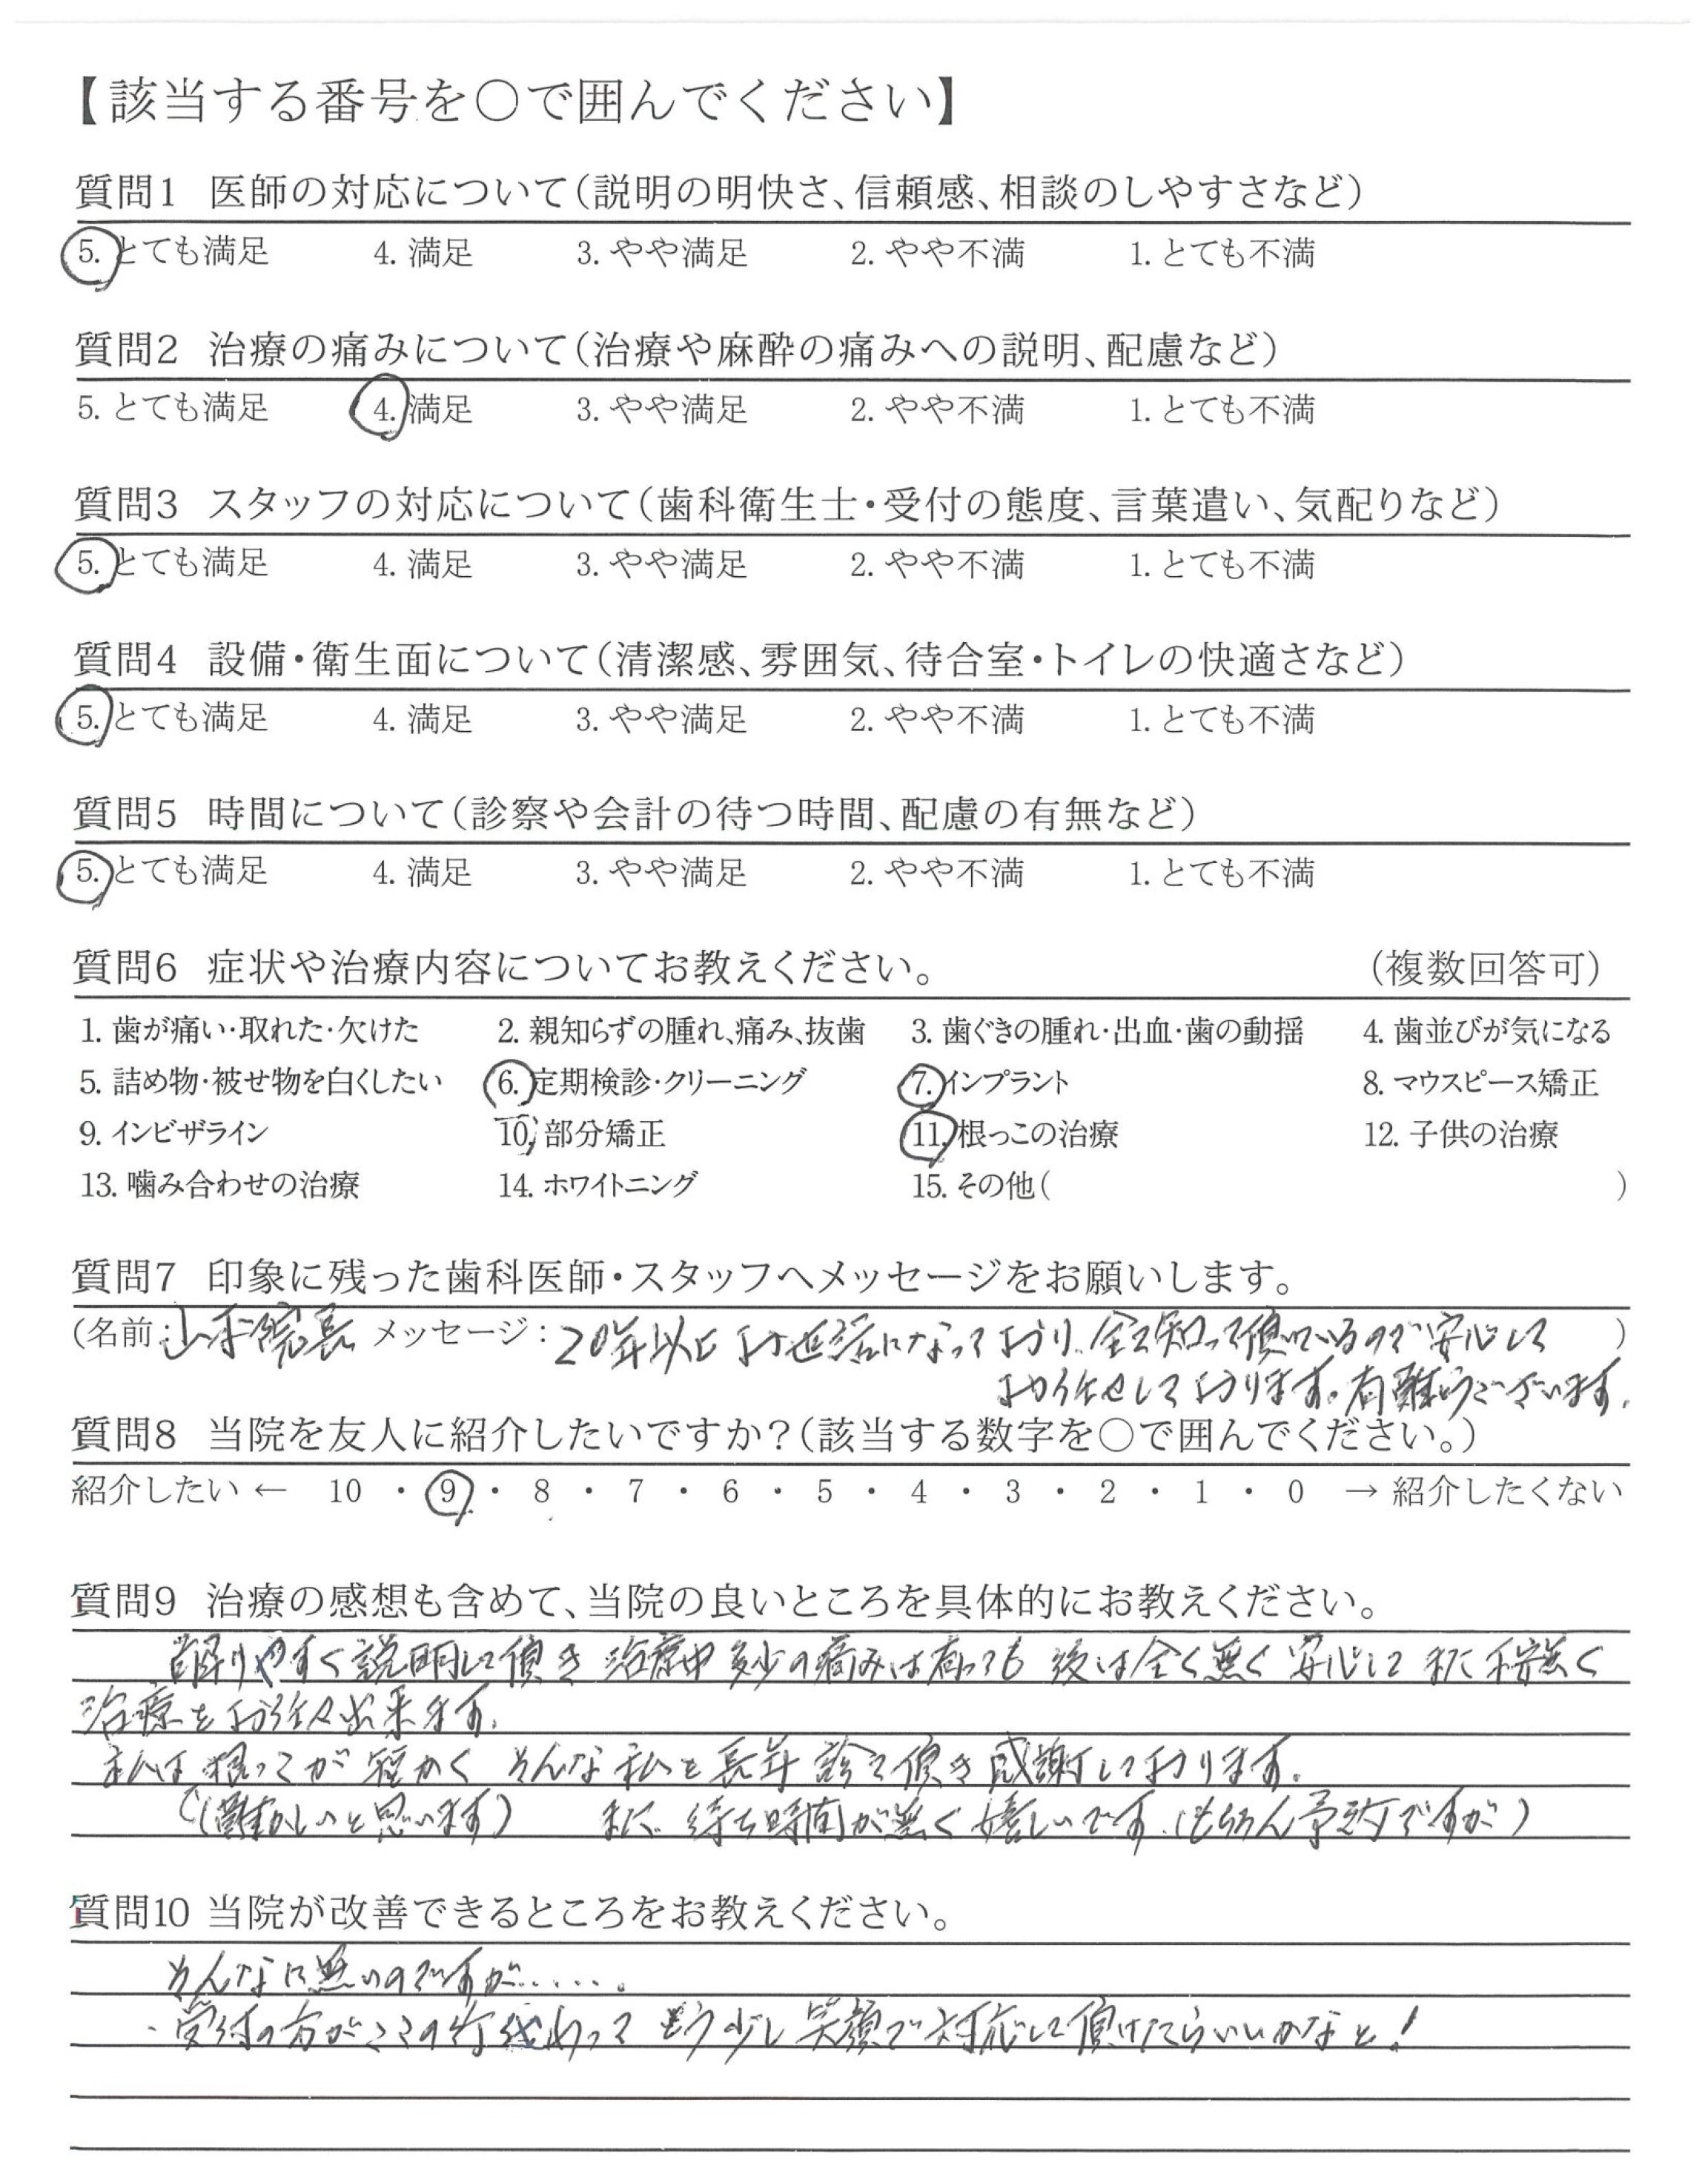 【該当する番号を○で囲んでください】
質問1 医師の対応について(説明の明快さ、信頼感、相談のしやすさなど)
5. とても満足 4. 満足 3. やや満足 2. やや不満 1. とても不満
質問2 治療の痛みについて(治療や麻酔の痛みへの説明、配慮など)
5. とても満足 4. 満足 3. やや満足 2. やや不満 1. とても不満
質問3 スタッフの対応について(歯科衛生士・受付の態度、言葉遣い、気配りなど)
5. とても満足 4. 満足 3. やや満足 2. やや不満 1. とても不満
質問4 設備・衛生面について(清潔感、雰囲気、待合室・トイレの快適さなど)
5. とても満足 4. 満足 3. やや満足 2. やや不満 1. とても不満
質問5 時間について(診察や会計の待つ時間、配慮の有無など)
5. とても満足 4. 満足 3. やや満足 2. やや不満 1. とても不満
質問6 症状や治療内容についてお教えください。 (複数回答可)
1. 歯が痛い・取れた・欠けた 2. 親知らずの腫れ、痛み、抜歯 3. 歯ぐきの腫れ・出血・歯の動揺 4. 歯並びが気になる
5. 詰め物・被せ物を白くしたい 6. 定期検診・クリーニング 7. インプラント 8. マウスピース矯正
9. インビザライン 10. 部分矯正 11. 根っこの治療 12. 子供の治療
13. 噛み合わせの治療 14. ホワイトニング 15. その他( )
質問7 印象に残った歯科医師・スタッフへメッセージをお願いします。
(名前: 院長 メッセージ: 20年以上お世話になっており、全て知って頂いているので安心して )
お任せしております。有難うございます。
質問8 当院を友人に紹介したいですか?(該当する数字を○で囲んでください。)
紹介したい ← 10 ・ 9 ・ 8 ・ 7 ・ 6 ・ 5 ・ 4 ・ 3 ・ 2 ・ 1 ・ 0 → 紹介したくない
質問9 治療の感想も含めて、当院の良いところを具体的にお教えください。
解りやすく説明して頂き 治療中 多少の痛みは有っても 後は全く無く 安心して また 無く
治療をお任せ出来ます。
私は根っこが短かく そんな私を長年 診て頂き感謝しております。
(難かしいと思います) また、待ち時間が無く嬉しいです。(もちろん予約ですが)
質問10 当院が改善できるところをお教えください。
そんなに無いのですが.....。
・受付の方がここの所 わって もう少し笑顔で対応して頂けたらいいかなと!